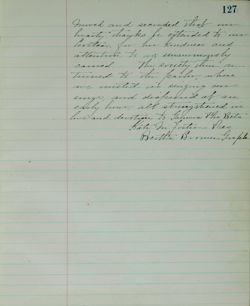 127
Moved and seconded that our
hearty thanks be extended to our
hostess for her kindness and
attention to us unanimously
carried. The society then
to the parlor, where
we united in singing
songs and dispersed at an
early hour all strengthened in
love and devotion to Gamma Phi Beta
Kate
Bertha